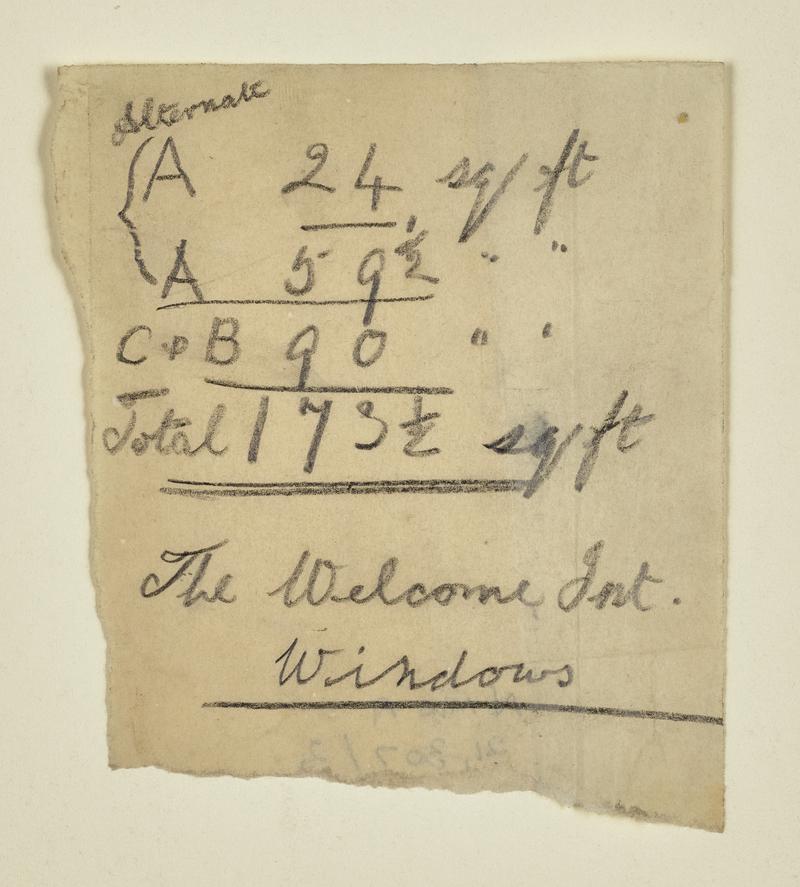 Alternate
A 24 sq/ft
A 59½ " "
C & B 90 " "
Total 173½ sq/ft
The Welcome Int.
Windows